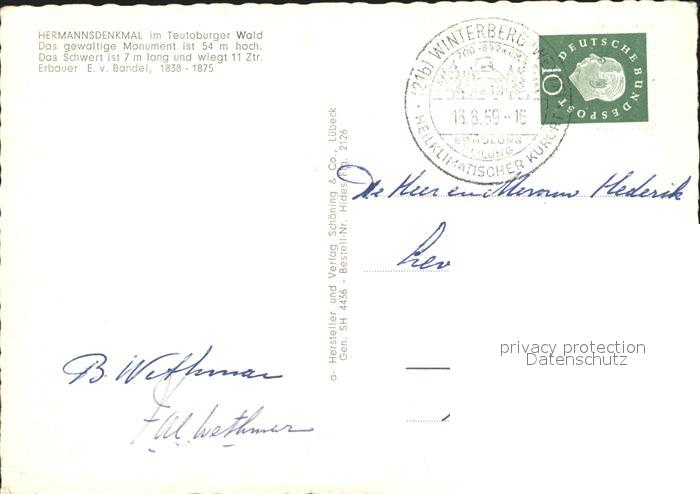 HERMANNSDENKMAL im Teutoburger Wald
Das gewaltige Monument ist 54 m hoch.
Das Schwert ist 7 m lang und wiegt 11 Ztr.
Erbauer E. v. Bandel, 1838 - 1875
(21b) WINTERBERG
18.8.59 - 16
ERHOLUNG
HEILUNG
HEILKLIMATISCHER KURORT
DEUTSCHE BUNDESPOST
10
Hersteller und Verlag Schöning & Co., Lübeck
Gen. SH 4436 - Bestell-Nr. Hides Flg. 2126
De Heer en Mevrouw Hederik
privacy protection
Datenschutz
B. Wethmar